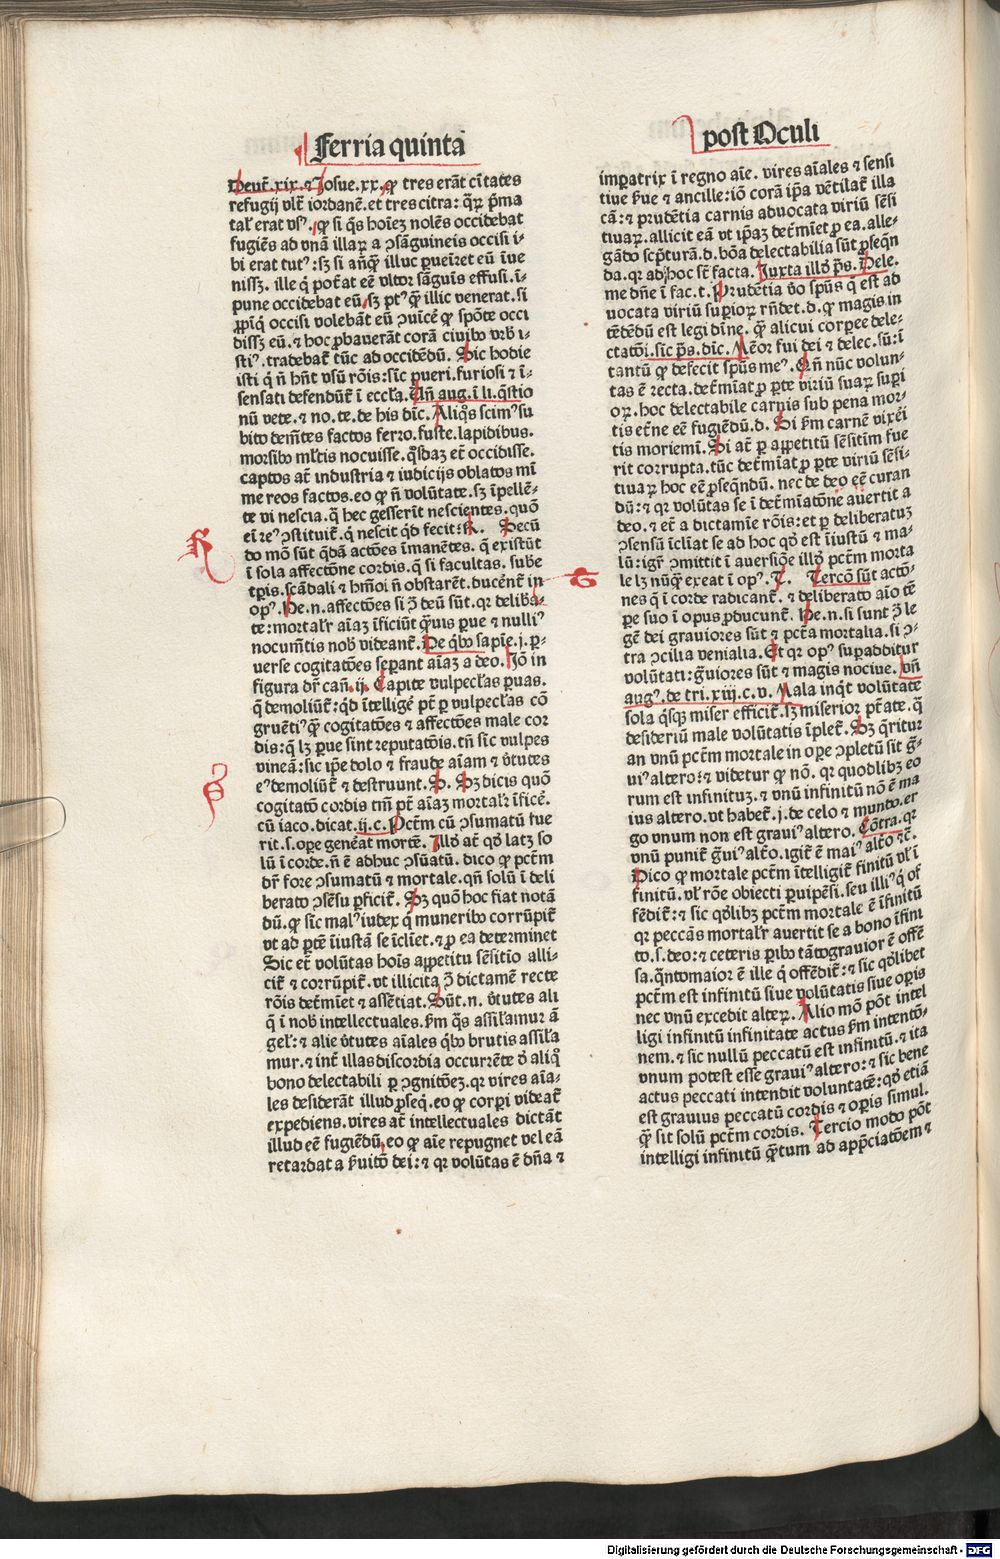 Ferria quinta
post Oculi
Deut̄. xix. ⁊ Josue. xx. ꝙ tres erāt ciītates
refugij vlt̄ iordanē. et tres citra: q̄ꝝ p̄ma
tal̄ erat vsꝰ. ꝙ si q̄s hoīeꝫ nolēs occidebat
fugiēs ad vnā illaꝝ a ↄsāguineis occisi i-
bi erat tutꝰ: sꝫ si an̄q̄ illuc ꝑueīret eū īue
nissꝫ. ille q̄ pot̄at eē vltor sāguīs effusi. ī-
pune occidebat eū, sꝫ ptꝰ q̄ illic venerat. si
ꝓpīq̄ occisi volebāt eū ↄuīcē ꝙ spōte occi
dissꝫ eū. ⁊ hoc ꝓbauerāt corā ciuibꝰ vrb̄ i-
stiꝰ. tradebat̄ tūc ad occidēdū. Sic hodie
isti q̄ n̄ hn̄t vsū rōis: sic̄ pueri. furiosi ⁊ ī-
sensati defendūt̄ ī eccl̄a. Un̄ aug. ī li. q̄stio
nū vete. ⁊ no. te. de his dic̄. Aliq̄s scimꝰ su
bito demētes factos ferro. fuste. lapidibus.
morsibꝰ ml̄tis nocuisse. q̄sdaꝫ et̄ occidisse.
captos at̄ industria ⁊ iudicijs oblatos mī
me reos factos. eo ꝙ n̄ volūtate. sꝫ īpellē-
te vi nescia. q̄ hec gesserīt nescientes. quō
eī reꝰ ↄstituit̄. q̄ nescit qd̄ fecit: R. Secū
do mō sūt q̄dā actōes īmanētes. q̄ existūt
ī sola affectōne cordis. q̄ si facultas. sube
tp̄is. scādali ⁊ hm̄oi n̄ obstarēt. ducēnt̄ in
opꝰ. De. n. affectōes si ↄ̄ deū sūt. qꝛ delibā-
te: mortal̄r aīaꝫ īficiūt q̄uis ꝑue ⁊ nulliꝰ
nocumētis nob̄ videant̄. De q̄bꝰ sapīe. j. ꝑ-
uerse cogitatōes seꝑant aīaꝫ a deo. Jō in
figura dr̄ cañ. ij. Capite vulpecl̄as ꝑuas.
q̄ demoliūt̄: qd̄ ītelligē pt̄ ꝑ vulpecl̄as cō
gruētiꝰ q̄ cogitatōes ⁊ affectōes male cor
dis: q̄ lꝫ ꝑue sint reputatōis. tn̄ sic̄ vulpes
vineā: sic ip̄e dolo ⁊ fraude aīam ⁊ v̄tutes
eꝰ demoliūt̄ ⁊ destruunt. S. Sꝫ dicis quō
cogitatō cordis tm̄ pt̄ aīaꝫ mortal̄r īficē.
cū iaco. dicat. ij. c. Pctm̄ cū ↄsumatū fue
rit. s. oꝑe gen̄eat mortē. Jllō at̄ qd̄ latꝫ so
lū ī corde. n̄ ē adhuc ↄsūatū. dico ꝙ pctm̄
dr̄ fore ↄsumatū ⁊ mortale. qn̄ solū ī deli
berato ↄsēsu ꝑficit̄. Sꝫ quō hoc fiat notā
dū. ꝙ sic malꝰ iudex q̄ muneribꝰ corrūpit̄
vt ad ꝑtē īiustā se īcliet. ⁊ ꝓ ea determinet
Sic et̄ volūtas hoīs aꝑpetitu sēsitīo alli-
cit̄ ⁊ corrūpit̄. vt illicita ↄ̄ dictamē recte
rōis det̄mīet ⁊ assētiat. Sūt. n. v̄tutes ali
q̄ ī nob̄ intellectuales. ẜm q̄s assil̄amur ā
gel̄: ⁊ alie v̄tutes aīales q̄bꝰ brutis assil̄a
mur. ⁊ int̄ illas discordia occurrēte d̄ aliq̄
bono delectabili ꝑ ↄgnitōeꝫ. qꝛ vires aīa-
les desiderāt illud ꝓseq̄. eo ꝙ corꝑi videat̄
expediens. vires at̄ intellectuales dictāt
illud eē fugiēdū, eo ꝙ aīe repugnet vel eā
retardat a ẜuitō dei: ⁊ qꝛ volūtas ē dn̄a ⁊
imꝑatrix ī regno aīe. vires aīales ⁊ sensi
tiue ẜue ⁊ ancille: iō corā ip̄a vētilat̄ illa
cā: ⁊ prudētia carnis aduocata viriū sēsi
tiuaꝝ. allicit eā vt ip̄aꝫ det̄mīet ꝓ ea. alle-
gādo scp̄turā. d. bōa delectabilia sūt ꝓseq̄n
da. qꝛ ad hoc st̄ facta. Juxta illd̄ p̄s. Dele.
me dn̄e ī fac. t. Prudētia v̄o spūs q̄ est ad
uocata viriū superioꝝ rn̄det. d. ꝙ magis in
tēdēdū est legi dīne. q̄ alicui corpee dele-
ctatōi. sic p̄s. dic̄. Mēor fui dei ⁊ delec. sū: ī
tantū ꝙ defecit spūs meꝰ. Qn̄ nūc volun-
tas ē recta. det̄mīat ꝓ ꝑte viriū suaꝝ supi
oꝝ. hoc delectabile carnis sub pena mor-
tis et̄ne eē fugiēdū. d. Si ẜm carnē vixēi
tis moriemī. Si at̄ ꝑ aꝑpetitū sēsitīm fue
rit corrupta. tūc det̄mīat ꝓ ꝑte viriū sēsi-
tiuaꝝ hoc eē ꝓseq̄ndū. nec de deo eē curan
dū: ⁊ qꝛ volūtas se ī det̄mīatōne auertit a
deo. ⁊ et̄ a dictamīe rōis: et ꝑ deliberatuꝫ
ↄsensū īcliat se ad hoc qd̄ est īiustū ⁊ ma-
lū: igr̄ ↄmittit ī auersiōe illd̄ pctm̄ morta
le lꝫ nūq̄ exeat ī opꝰ. T. Tercō sūt actō-
nes q̄ ī corde radicant̄. ⁊ deliberato aīo tē
ꝑe suo ī opus ꝓducunt̄. De. n. si sunt ↄ̄ le
gē dei grauiores sūt ⁊ pctā mortalia. si ↄ-
tra ↄcilia venialia. Et qꝛ opꝰ suꝑadditur
volūtati: ḡuiores sūt ⁊ magis nociue. vn̄
augꝰ. de tri. xiij. c. v. Mala inq̄t volūtate
sola q̄sqꝫ miser efficit̄. sꝫ miserior ptāte. q̄
desideriū male volūtatis īplet̄. Sꝫ q̄ritur
an vnū pctm̄ mortale in oꝑe ↄpletū sit ḡ-
uiꝰ altero: ⁊ videtur ꝙ nō. qꝛ quodlibꝫ eo
rum est infinituꝫ. ⁊ vnū infinitū nō ē ma
ius altero. vt habet̄. j. de celo ⁊ mundo. er
go vnum non est grauiꝰ altero. Cōtra. qꝛ
vnū punit̄ ḡuiꝰ alt̄o. igit̄ ē maiꝰ alt̄o ⁊c̄.
Dico ꝙ mortale pctm̄ ītelligit̄ finitū vl̄ ī
finitū. vl̄ rōe obiecti ꝑuipēsi. seu illiꝰ q̄ of
fēdit̄: ⁊ sic qd̄libꝫ pctm̄ mortale ē īfinitū
qꝛ peccās mortal̄r auertit se a bono īfini
to. s. deo: ⁊ ceteris paribꝰ tāto grauior ē offē
sa. q̄nto maior ē ille q̄ offēdit̄: ⁊ sic qd̄libet
pctm̄ est infinitū siue volūtatis siue oꝑis
nec vnū excedit alteꝝ. Alio mō pōt intel
ligi infinitū infinitate actus ẜm intentō-
nem. ⁊ sic nullū peccatū est infinitū. ⁊ ita
vnum potest esse grauiꝰ altero: ⁊ sic bene
actus peccati intendit voluntatē: qd̄ etiā
est grauius peccatū cordis ⁊ oꝑis simul.
q̄ sit solū pctm̄ cordis. Tercio modo pōt
intelligi infinitū q̄tum ad app̄ciatōem ⁊
Digitalisierung gefördert durch die Deutsche Forschungsgemeinschaft - DFG